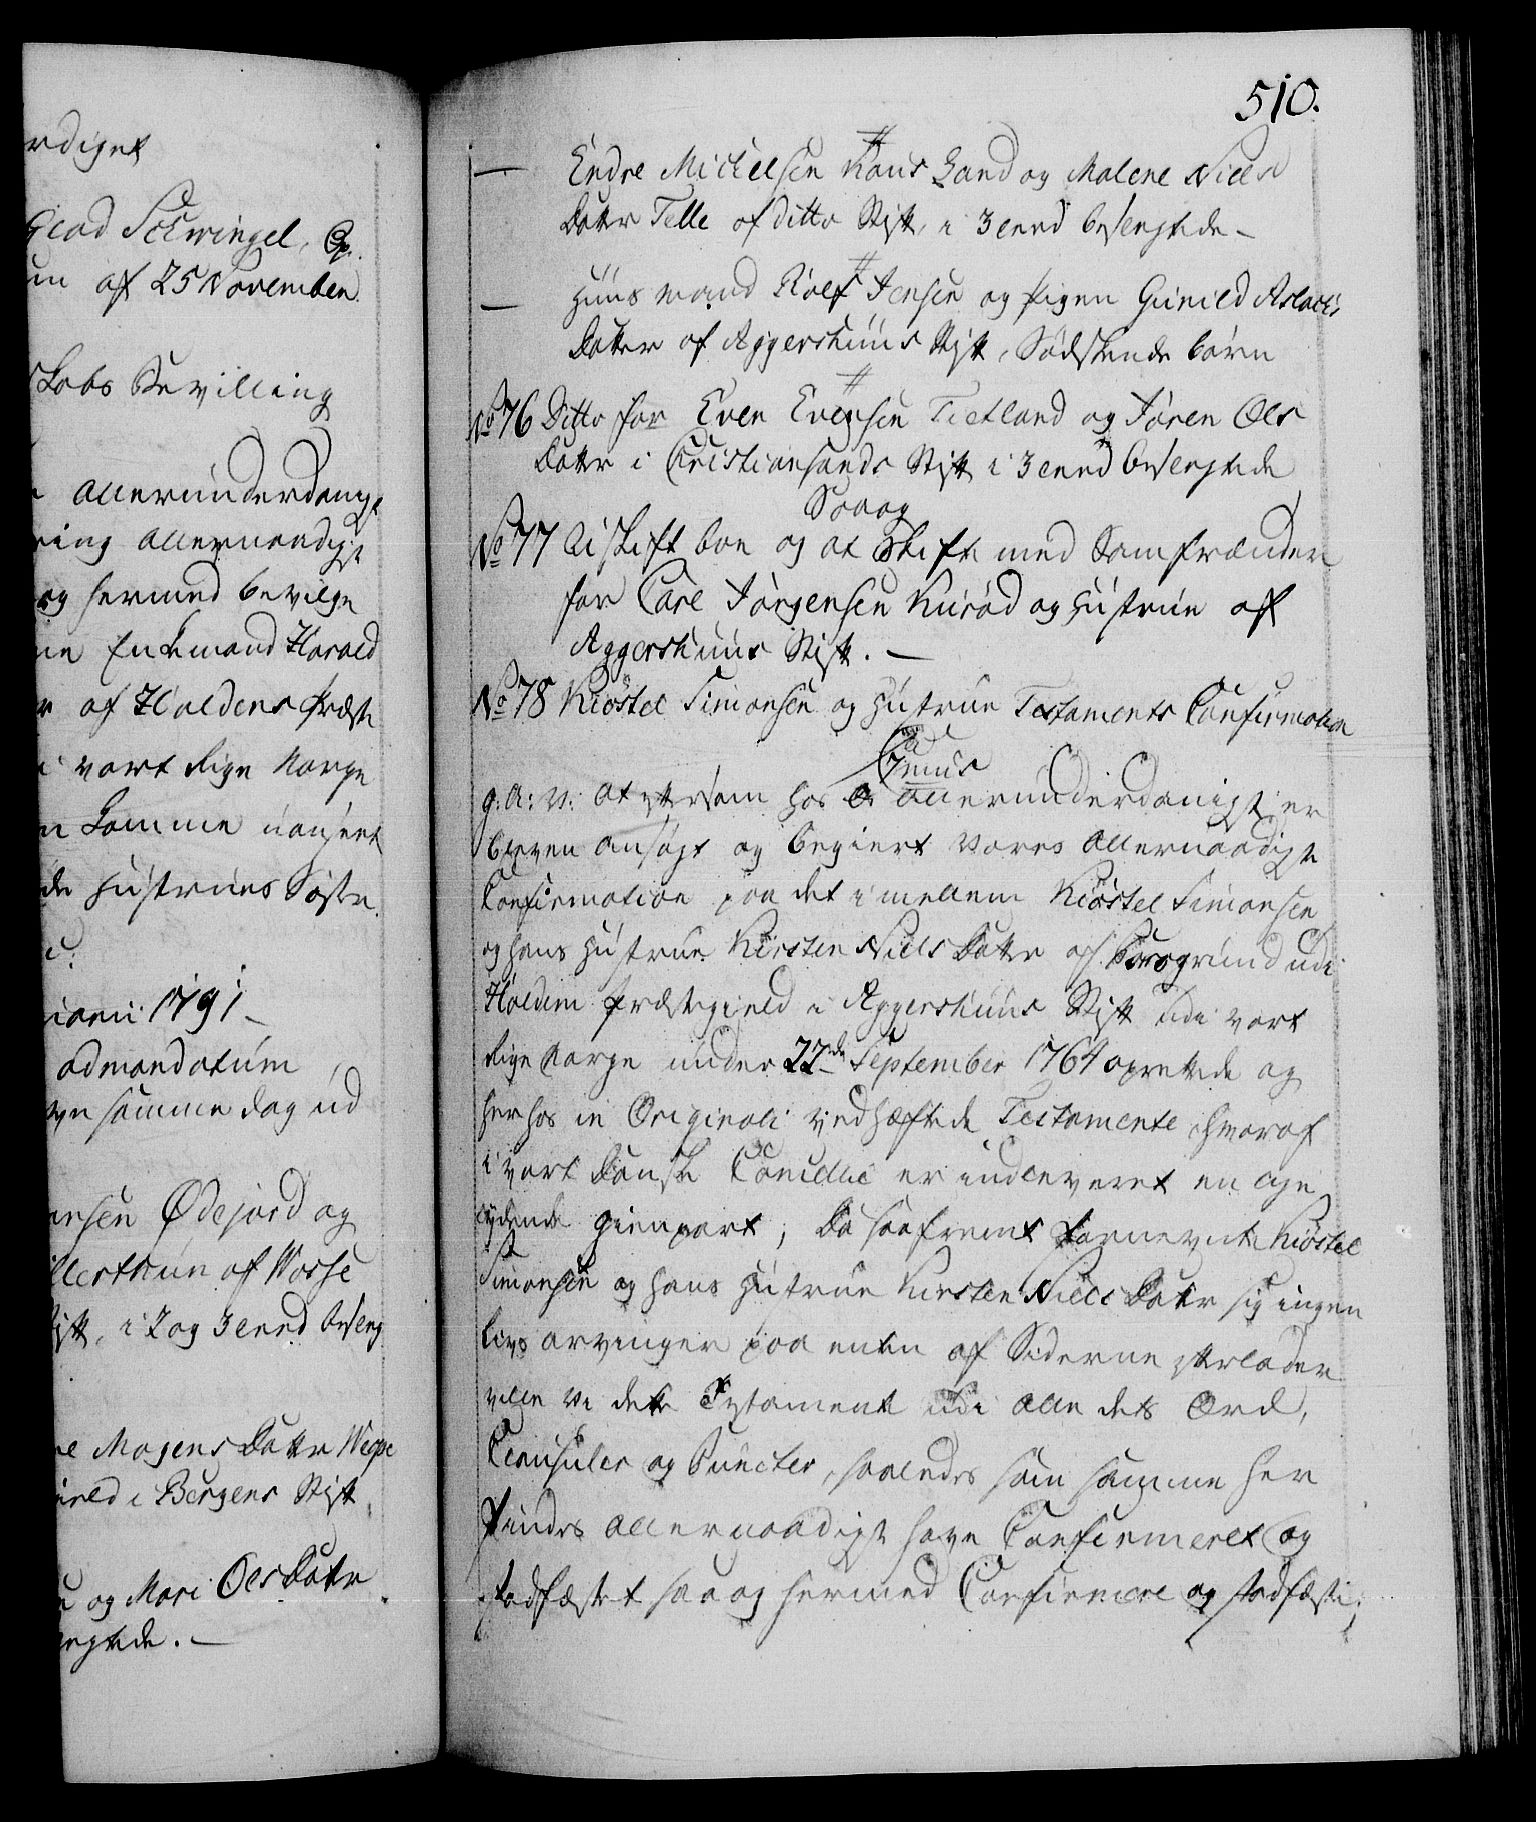 rdiget
Giød Schwingel, Cop.
um af 25 November
skabs Bevilling
allerunderdanigst
ring allernaadigst
og hermed bevilge
ne Enkemand Harald
r af Holdens Præste
i vort Rige Norge
n komme uanseet
de Hustrues Søster.
nuarii 1791
ad mandatum
ve samme dag ud
ansen Ødejord og
llesthun af Wosse
Stift, i 2 og 3 eend besleng
ne Mogens Datter Weqve
gield i Bergens Stift
n og Mari Ols Datter
engtede. —
510.
— Endre Michelsen Hous Land og Malene Niels
Datter Telle af ditto Stift, i 3 eend beslengtede —
— Huusmand Rolf Jensen og Pigen Gunild Aslachs
Datter af Aggershuus Stift, Sødskende børn
No 76 Ditto for Even Evensen Tietland og Jøren Ols
Datter i Christiansands Stift i 3 eend beslengtede
Saaog
No 77 Uskift boe og at Skifte med Samfrænder
for Carl Jørgensen Kurød og Hustrue af
Aggershuus Stift. —
No 78 Kiøstel Simonsen og Hustrue Testaments Confirmation
Genus
g: A: V: at eftersom hos Os allerunderdanigst er
bleven ansøgt og begiert Vores allernaadigste
Confirmation paa det imellem Kiøstel Simonsen
og hans Hustrue Kirsten Niels Datter af Porsgrund udi
Holden Præstegield i Aggershuus Stift udi vort
Rige Norge under 22de September 1764 oprettede og
herhos in Originali vedhæftede Testamente, hvoraf
i vort Danske Cancellie er indleveret en lige
lydende Gienpart; Da saafremt fornevnte Kiøstel
Simonsen og hans Hustrue Kirsten Niels Datter sig ingen
livs arvinger paa enten af Siderne efterlader
ville Vi dette Testament udi alle dets Ord,
Clausuler og Puncter, saaledes som samme her
findes allernaadigst have Confirmeret og
stadfæstet saa og hermed Confirmere og stadfæste;